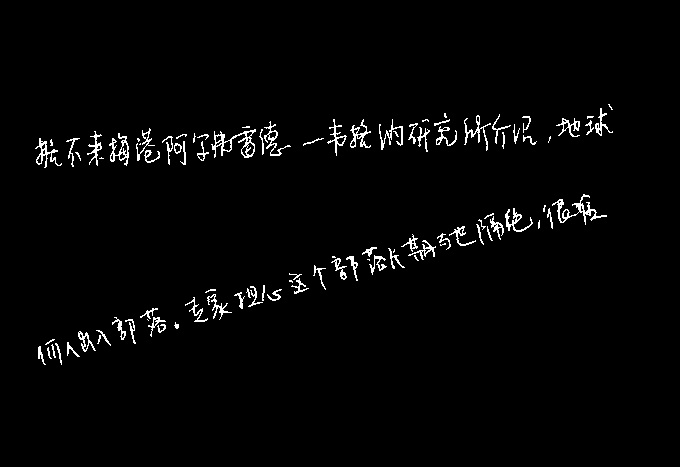 据不来梅港阿尔弗雷德一韦格纳研究所介绍,地球
何人出入部落。专家担心这个部落长期与世隔绝,很难